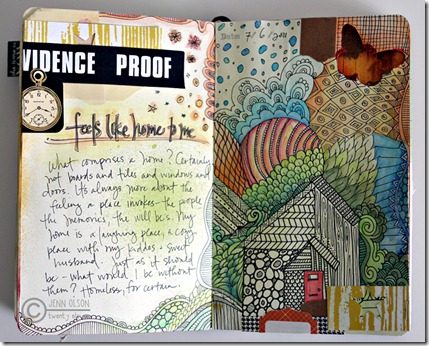 VIDENCE PROOF
feels like home to me
What comprises a home? Certainly
not boards and tiles and windows and
doors. It's always more about the
feeling a place invokes - the people
the memories, the will be's. My
home is a laughing place, a cozy
place with my kiddos + sweet
husband. Just as it should
be - what would I be without
them? Homeless, for certain.
© JENN OLSON
twenty
Date: 7/6/2011